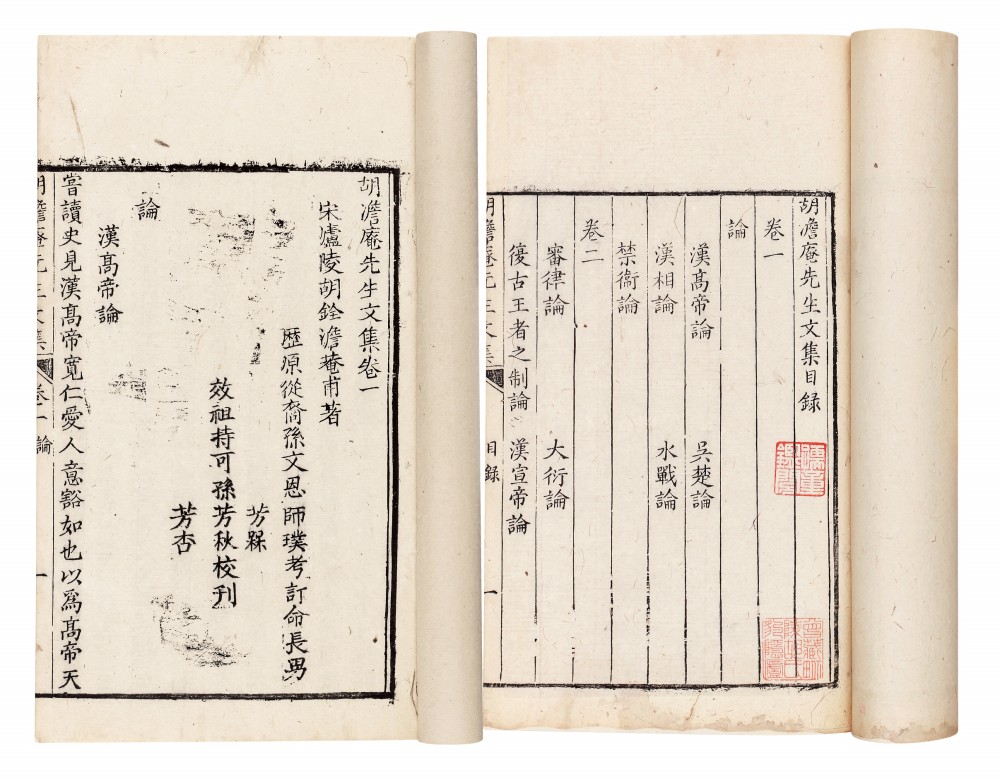 胡澹庵先生文集目録
卷一
論
漢髙帝論 吳楚論
漢相論 水戰論
禁衞論
卷二
審律論 大衍論
復古王者之制論 漢宣帝論
胡澹庵先生文集 目録 一
胡澹庵先生文集卷一
宋廬陵胡銓澹菴甫著
歴原從裔孫文恩師璞考訂命長男
芳槑
效祖持可孫芳秋校刋
芳杏
論
漢髙帝論
嘗讀史見漢髙帝寬仁愛人意豁如也以爲髙帝天
胡澹庵先生文集 卷一 論 一